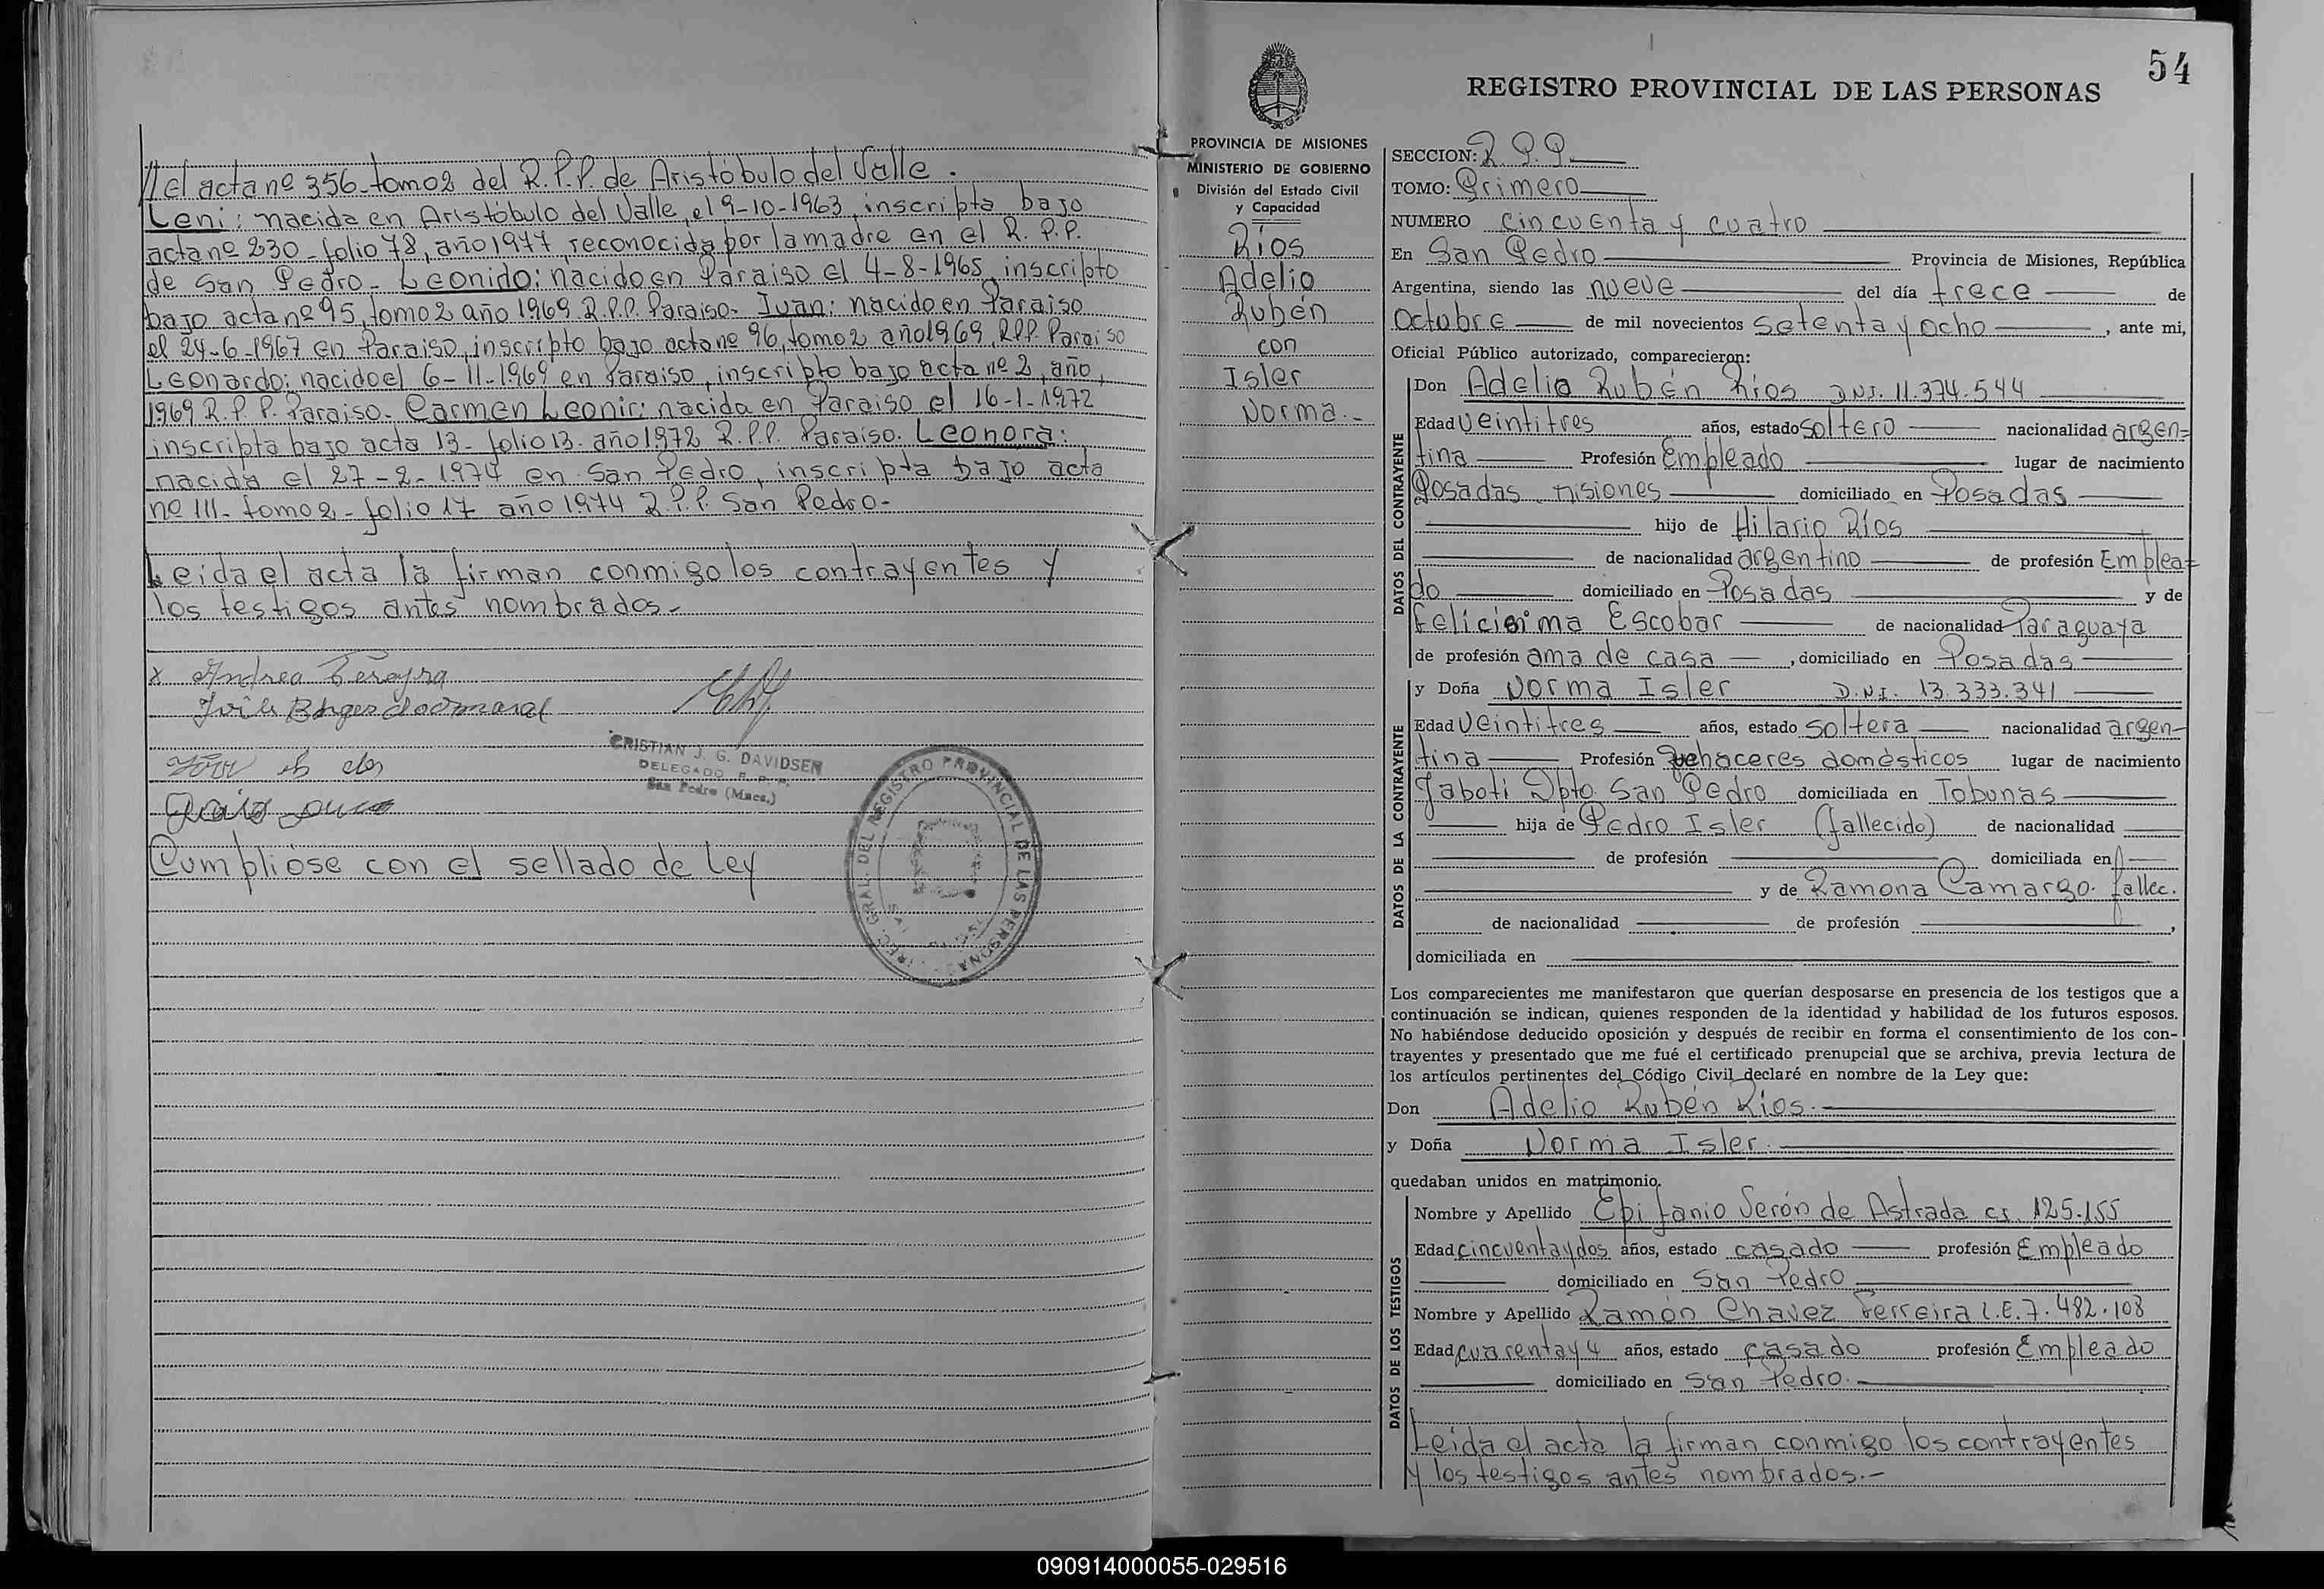 el acta nº 356 tomo 2 del R.P.P. de Aristóbulo del Valle.
Leni: nacida en Aristóbulo del Valle, el 9-10-1963, inscripta bajo
acta nº 230 - folio 78, año 1977, reconocida por la madre en el R.P.P.
de San Pedro - Leonido: nacido en Paraiso el 4-8-1965, inscripto
bajo acta nº 95, tomo 2 año 1969 R.P.P. Paraiso - Ivan: nacido en Paraiso
el 24-6-1967 en Paraiso, inscripto bajo acta nº 96, tomo 2 año 1969, R.P.P. Paraiso
Leonardo: nacido el 6-11-1969 en Paraiso, inscripto bajo acta nº 2, año,
1969 R.P.P. Paraiso. Carmen Leonir: nacida en Paraiso el 16-1-1972
inscripta bajo acta 13 - folio 13 - año 1972 R.P.P. Paraiso. Leonora:
nacida el 27-2-1974 en San Pedro, inscripta bajo acta
nº 111 - tomo 2 - folio 17 año 1974 R.P.P. San Pedro -
Leida el acta la firman conmigo los contrayentes y
los testigos antes nombrados -
x Andrea
CRISTIAN J. G. DAVIDSEN
DELEGADO R. P. P.
San Pedro (Mnes.)
GRAL. DEL REGISTRO PROVINCIAL DE LAS PERSONAS
Cumplióse con el sellado de Ley
54
REGISTRO PROVINCIAL DE LAS PERSONAS
PROVINCIA DE MISIONES
MINISTERIO DE GOBIERNO
División del Estado Civil
y Capacidad
Ríos
Adelio
Rubén
con
Isler
Norma.-
SECCION: R.P.P.
TOMO: Primero
NUMERO cincuenta y cuatro
En San Pedro Provincia de Misiones, República
Argentina, siendo las nueve del día trece de
Octubre de mil novecientos setenta y ocho, ante mi,
Oficial Público autorizado, comparecieron:
DATOS DEL CONTRAYENTE
Don Adelio Rubén Ríos DNI. 11.374.544
Edad veintitres años, estado soltero nacionalidad argen=
tina Profesión Empleado lugar de nacimiento
Posadas misiones domiciliado en Posadas
hijo de Hilario Ríos
de nacionalidad argentino de profesión Emplea=
do domiciliado en Posadas y de
Felicisima Escobar de nacionalidad Paraguaya
de profesión ama de casa, domiciliado en Posadas
DATOS DE LA CONTRAYENTE
y Doña Norma Isler D.N.I. 13.333.341
Edad veintitres años, estado soltera nacionalidad argen-
tina Profesión quehaceres domésticos lugar de nacimiento
Jaboti Dpto San Pedro domiciliada en Tobunas
hija de Pedro Isler (fallecido) de nacionalidad
de profesión domiciliada en
y de Ramona Camargo. fallec.
de nacionalidad de profesión ,
domiciliada en
Los comparecientes me manifestaron que querían desposarse en presencia de los testigos que a
continuación se indican, quienes responden de la identidad y habilidad de los futuros esposos.
No habiéndose deducido oposición y después de recibir en forma el consentimiento de los con-
trayentes y presentado que me fué el certificado prenupcial que se archiva, previa lectura de
los artículos pertinentes del Código Civil declaré en nombre de la Ley que:
Don Adelio Rubén Ríos.
y Doña Norma Isler.
quedaban unidos en matrimonio.
DATOS DE LOS TESTIGOS
Nombre y Apellido Epifanio Serón de Astrada CI. 125.155
Edad cincuenta y dos años, estado casado profesión Empleado
domiciliado en San Pedro
Nombre y Apellido Ramón Chavez Ferreira L.E. 7.482.108
Edad cuarenta y 4 años, estado casado profesión Empleado
domiciliado en San Pedro.
Leida el acta la firman conmigo los contrayentes
y los testigos antes nombrados.-
090914000055-029516